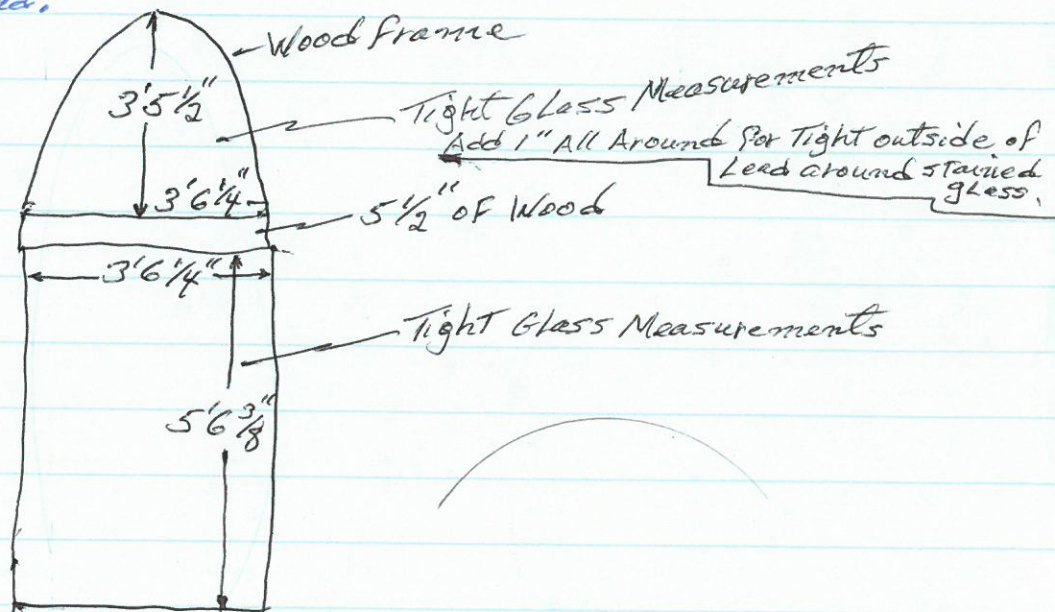 Wood Frame
3'5 1/2"
Tight Glass Measurements
Add 1" All Around for Tight outside of
Lead around stained
glass.
3'6 1/4"
5 1/2" of Wood
3'6 1/4"
Tight Glass Measurements
5'6 3/8"